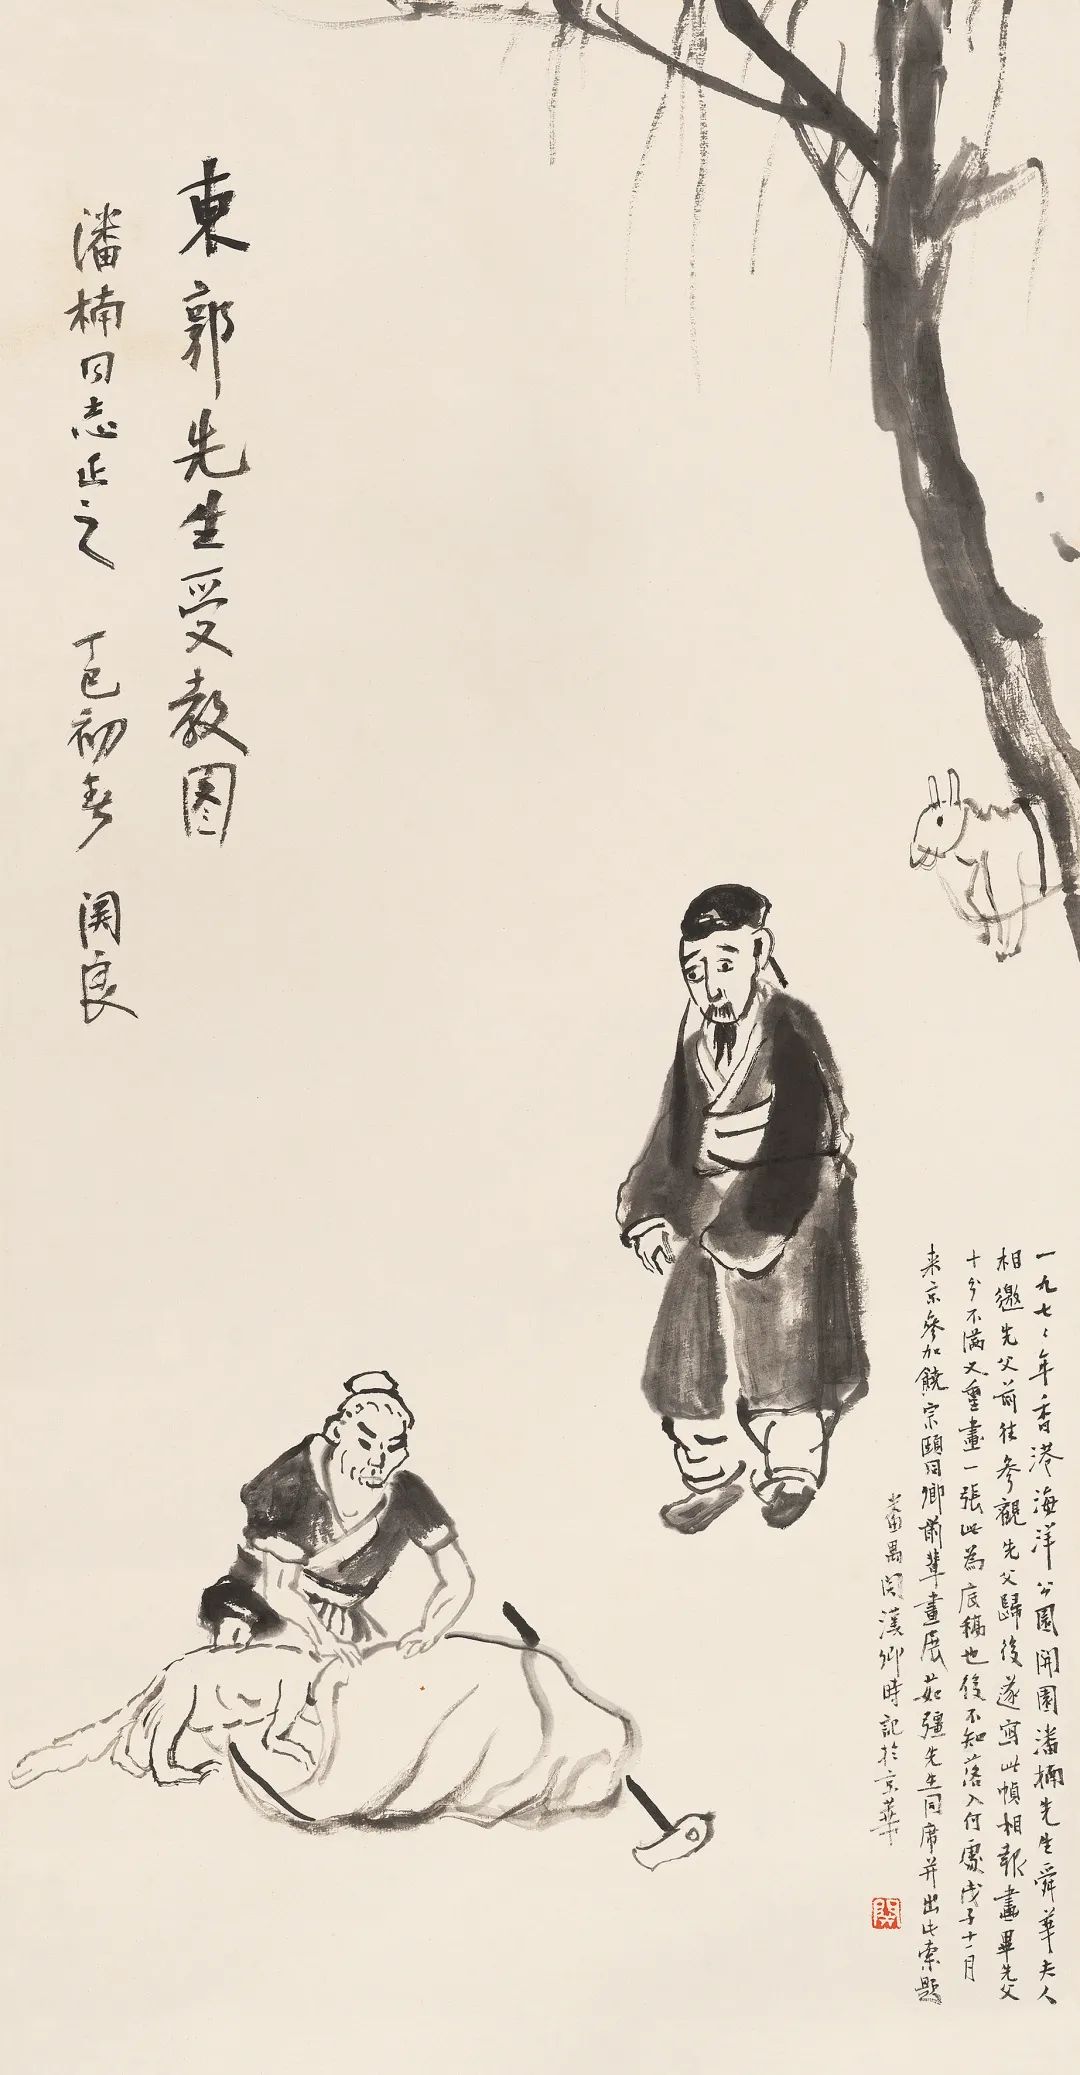 東郭先生受教圖
潘楠同志正之 丁巳初春 関良
一九七七年香港海洋公園開園潘楠先生舜華夫人
相邀先父前往参觀先父歸後遂寫此幀相報畫畢先父
十分不滿又重畫一張此為底稿也後不知落入何處戊子十一月
来京參加饒宗頤同鄉前輩畫展茹彊先生同席并出此索題
番禺関漢卿時記於京華
関